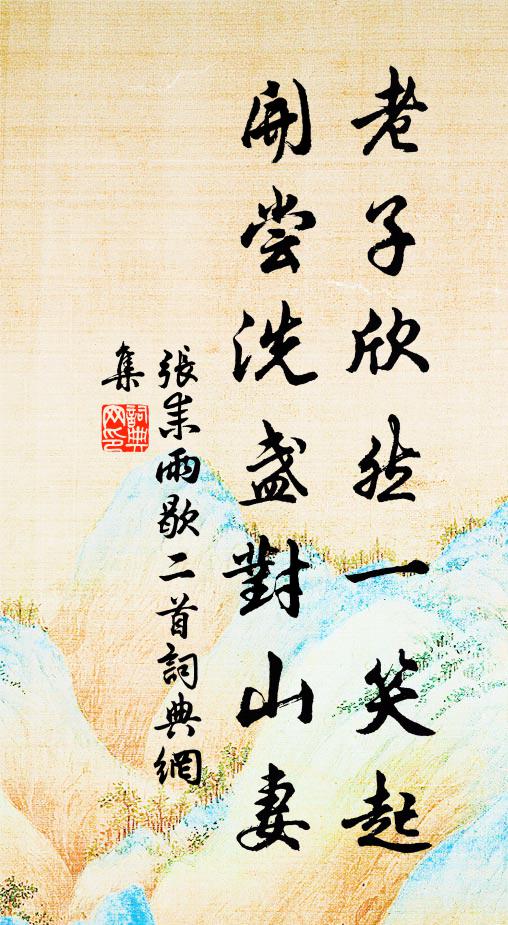 老子欣然一笑起
開尝洗盞對山妻
張耒雨歇二首詞典網
集
詞典網印